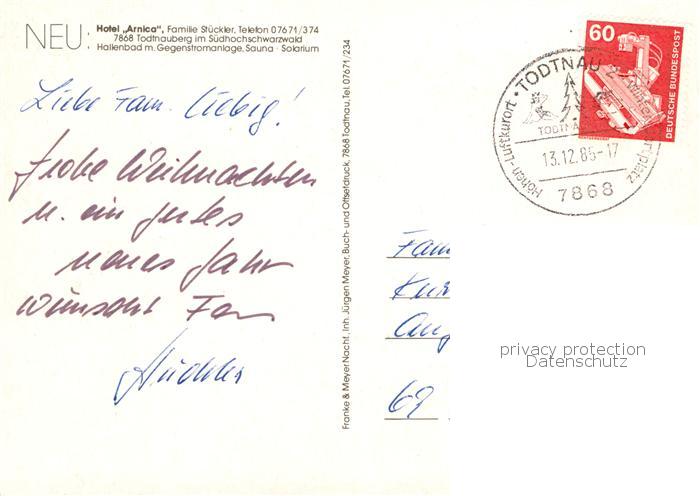 NEU: Hotel „Arnica“, Familie Stückler, Telefon 07671/374
7868 Todtnauberg im Südhochschwarzwald
Hallenbad m. Gegenstromanlage, Sauna · Solarium
Liebe Fam. Liebig!
Frohe Weihnachten
u. ein gutes
neues Jahr
wünscht Fam
Stückler
Franke & Meyer Nachf., Inh. Jürgen Meyer, Buch- und Offsetdruck, 7868 Todtnau, Tel. 07671/234
60
DEUTSCHE BUNDESPOST
TODTNAU 2
Höhen-Luftkurort
13.12.85-17
7868
Fam
69
privacy protection
Datenschutz